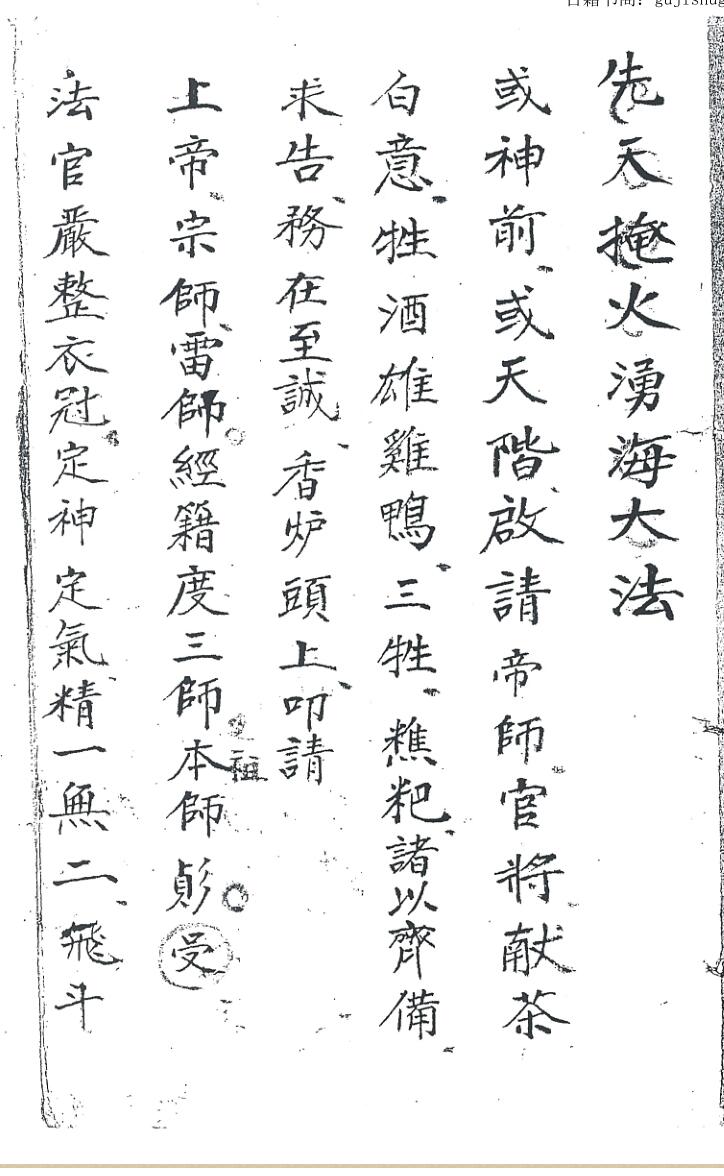 古籍书阁：gujishug
先天掩火湧海大法
或神前或天階啟請帝師官將献茶
白意牲酒雄雞鴨三牲糍粑諸以齊備
求告務在至誠香炉頭上叩請
上帝宗師雷師經籍度三師本師 受
祖
法官嚴整衣冠定神定氣精一無二飛斗